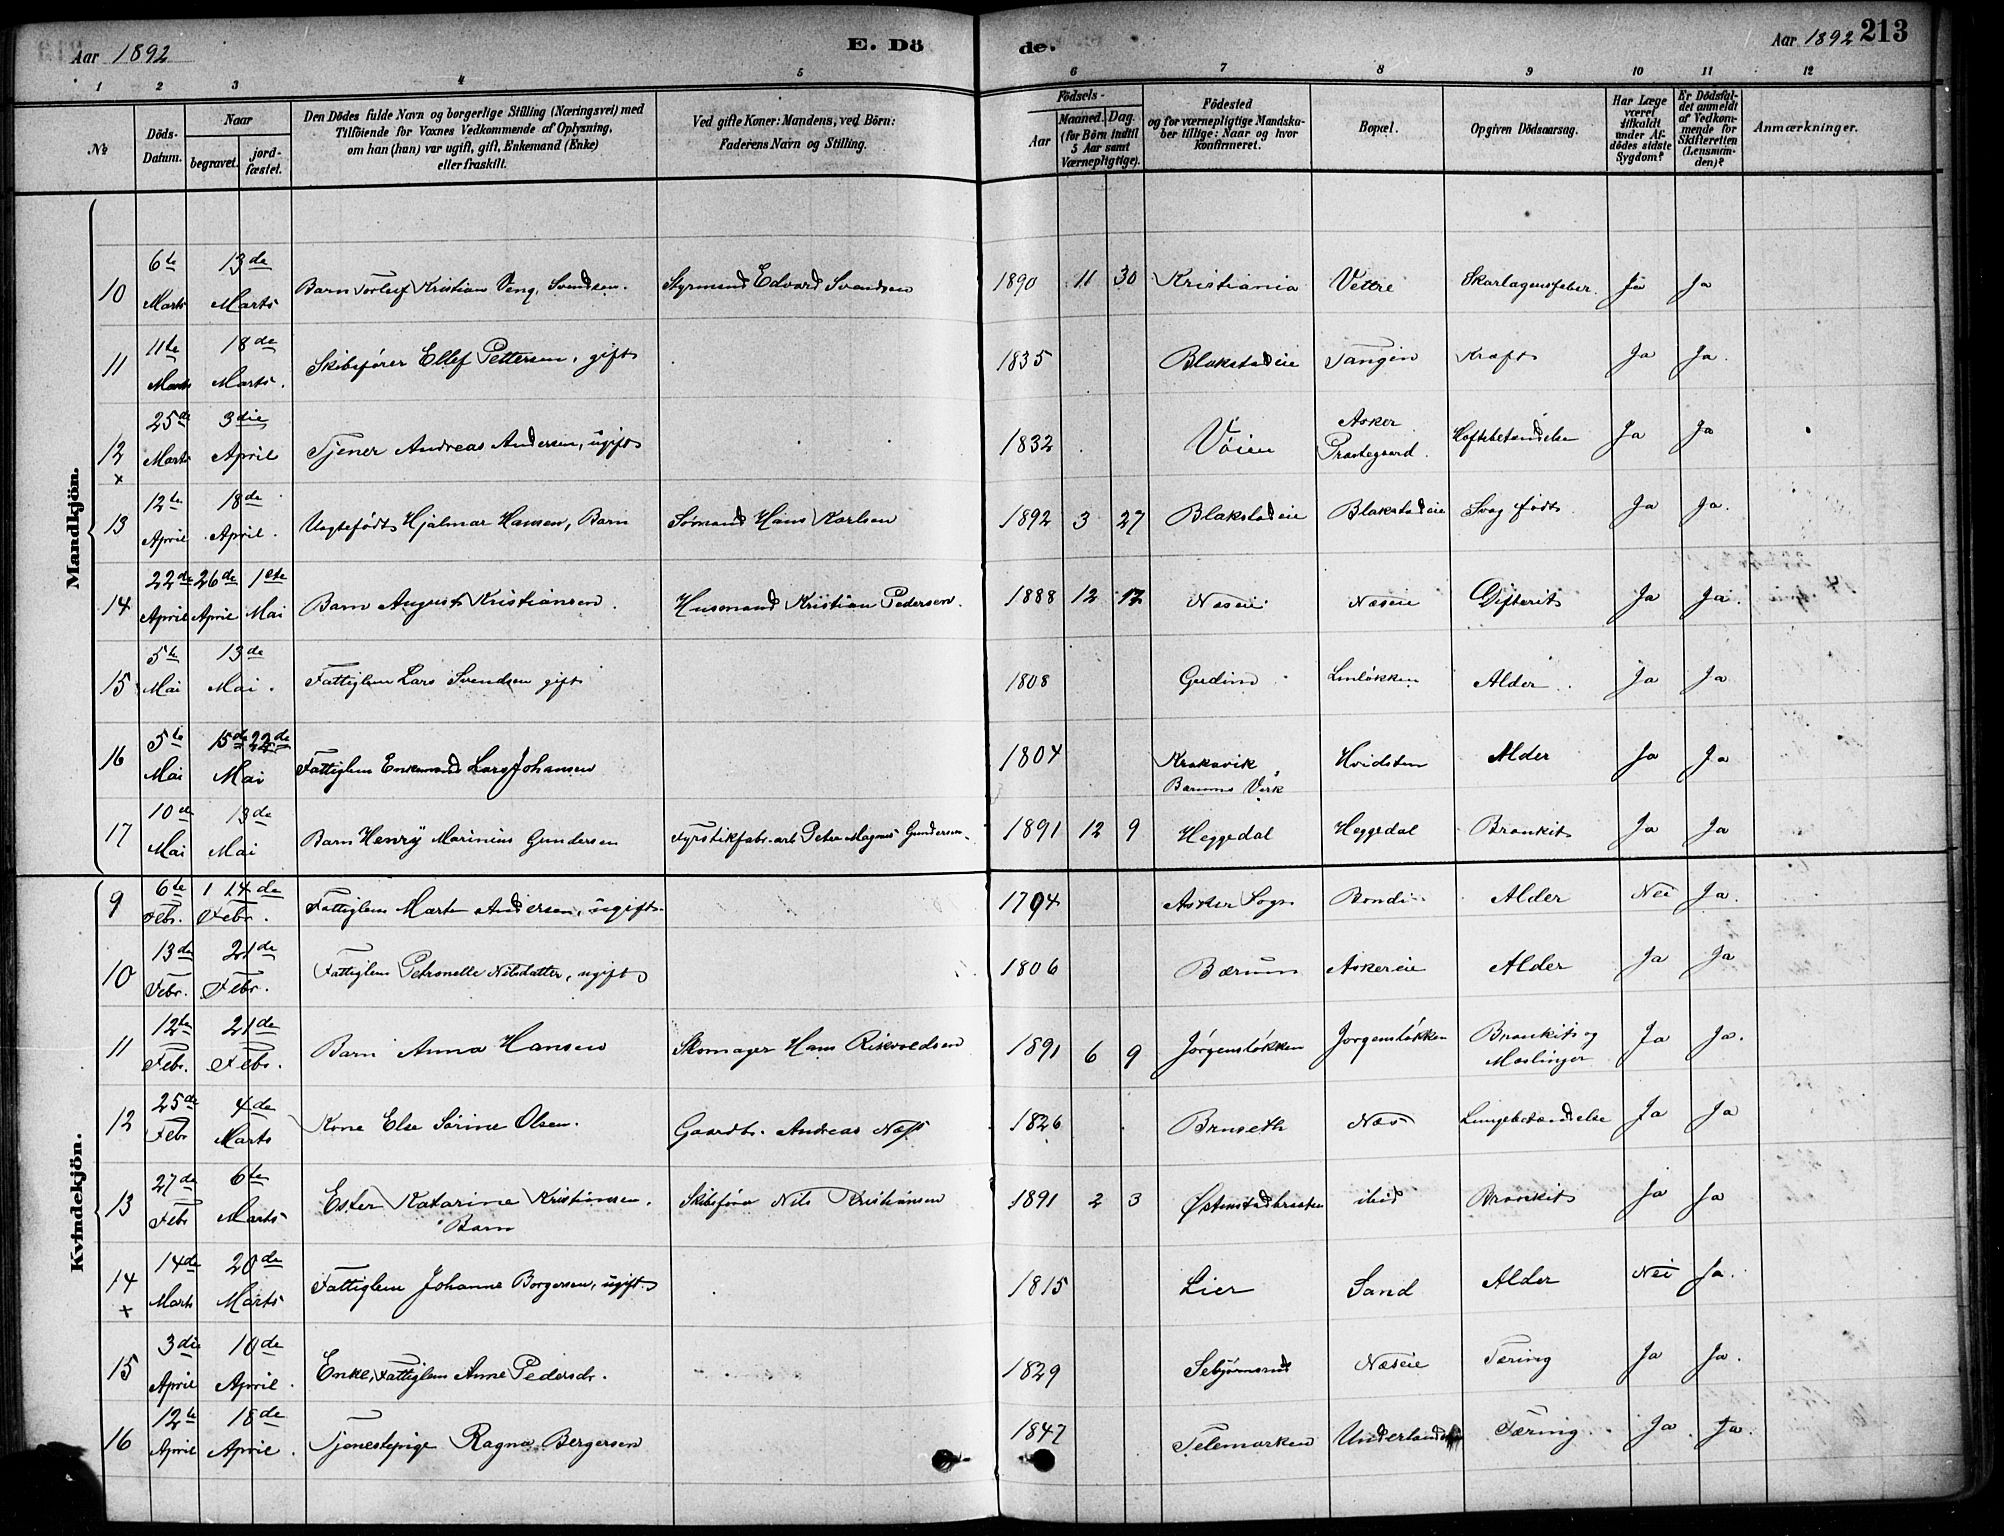 Aar 1892 E. Dö de. Aar 1892 213
1 2 3 4 5 6 7 8 9 10 11 12
№ Döds-Datum. Naar begravet. jord-fæstet. Den Dödes fulde Navn og borgerlige Stilling (Næringsvei) med Tilföiende for Voxnes Vedkommende af Oplysning, om han (hun) var ugift, gift, Enkemand (Enke) eller fraskilt. Ved gifte Koner: Mandens, ved Börn: Faderens Navn og Stilling. Födsels- Aar Maaned. Dag. (for Börn indtil 5 Aar samt Værnepligtige). Födested og for værnepligtige Mandskaber tillige: Naar og hvor Konfirmeret. Bopæl. Opgiven Dödsaarsag. Har Læge været tilkaldt under Afdödes sidste Sygdom? Er Dödsfaldet anmeldt af Vedkommende for Skifteretten (Lensmanden)? Anmærkninger.
Mandkjön.
10 6te Marts 13de Marts Barn Torluf Kristian Veng. Svendsen. Styrmand Edvard Svendsen 1890 11 30 Kristiania Vettre Skarlagensfeber. Ja Ja
11 11te Marts 18de Marts. Skibsfører Ellef Pettersen, gift 1835 Blakstadeie Tangen Kræft Ja Ja.
12 25de Marts 3die April Tjener Andreas Andersen, ugift 1832 Vöien Asker Præstegaard. Hoftebetændelse Ja Ja
x
13 12te April 18de April. Uægtefødt Hjalmar Hansen, Barn Sömand Hans Karlsen 1892 3 27 Blakstadeie Blakstadeie Svag født Ja Ja.
14 22de April 26de April 1ste Mai Barn August Kristiansen. Husmand Kristian Pedersen. 1888 12 12 Næseie Næseie Difterit Ja Ja.
15 5te Mai 13de Mai. Fattiglem Lars Svendsen gift 1808 Gudim Lenløkken Alder Ja Ja
16 5te Mai 15de 22de Mai Fattiglem Enkemand Lars Johansen 1804 Krokavik Bærums Verk Hvidsten Alder Ja Ja
17 10de Mai 13de Mai Barn Henrÿ Marinius Gundersen Fyrstikfabr.arb Peter Magnus Gundersen. 1891 12 9 Heggedal Heggedal Bronkit Ja Ja
Kvindekjön.
9 6te Febr. 14de Febr. Fattiglem Marte Andersen, ugift. 1794 Asker Sogn Bondi Alder Nei Ja.
10 13de Febr. 21de Febr. Fattiglem Petronelle Nilsdatter, ugift 1806 Bærum Askereie Alder Ja Ja
11 12te Febr. 21de Febr. Barn Anna Hansen Skomager Hans Risvoldsen 1891 6 9 Jørgensløkken Jorgensløkken Bronkit og Mæslinger Ja Ja.
12 25de Febr 4de Marts Kone Else Sörine Olsen. Gaardbr. Andreas Næss 1826 Bruseth Næs Lungebetændelse Ja Ja
13 27de Febr 6te Marts Ester Katarine Kristiansen. Barn Skibsfører Nils Kristiansen 1891 2 3 Østenstadbraaten ibid Bronkit Ja Ja
14 14de Marts 20de Marts Fattiglem Johanne Borgersen, ugift. 1815 Lier Sand Alder Nei Ja.
+
15 3die April 10de April. Enke, Fattiglem Anne Pedersdr. 1829 Næseie Tæring Ja Ja.
16 12te April 18de April. Tjenestepige Ragna Bergersen 1847 Telemarken Underland Tæring. Ja Ja.